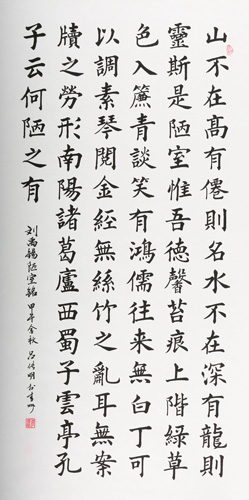 山不在高有僊則名水不在深有龍則
靈斯是陋室惟吾德馨苔痕上階緑草
色入簾青談笑有鴻儒往來無白丁可
以調素琴閱金經無絲竹之亂耳無案
牘之勞形南陽諸葛廬西蜀子雲亭孔
子云何陋之有
刘禹锡陋室銘 甲午金秋